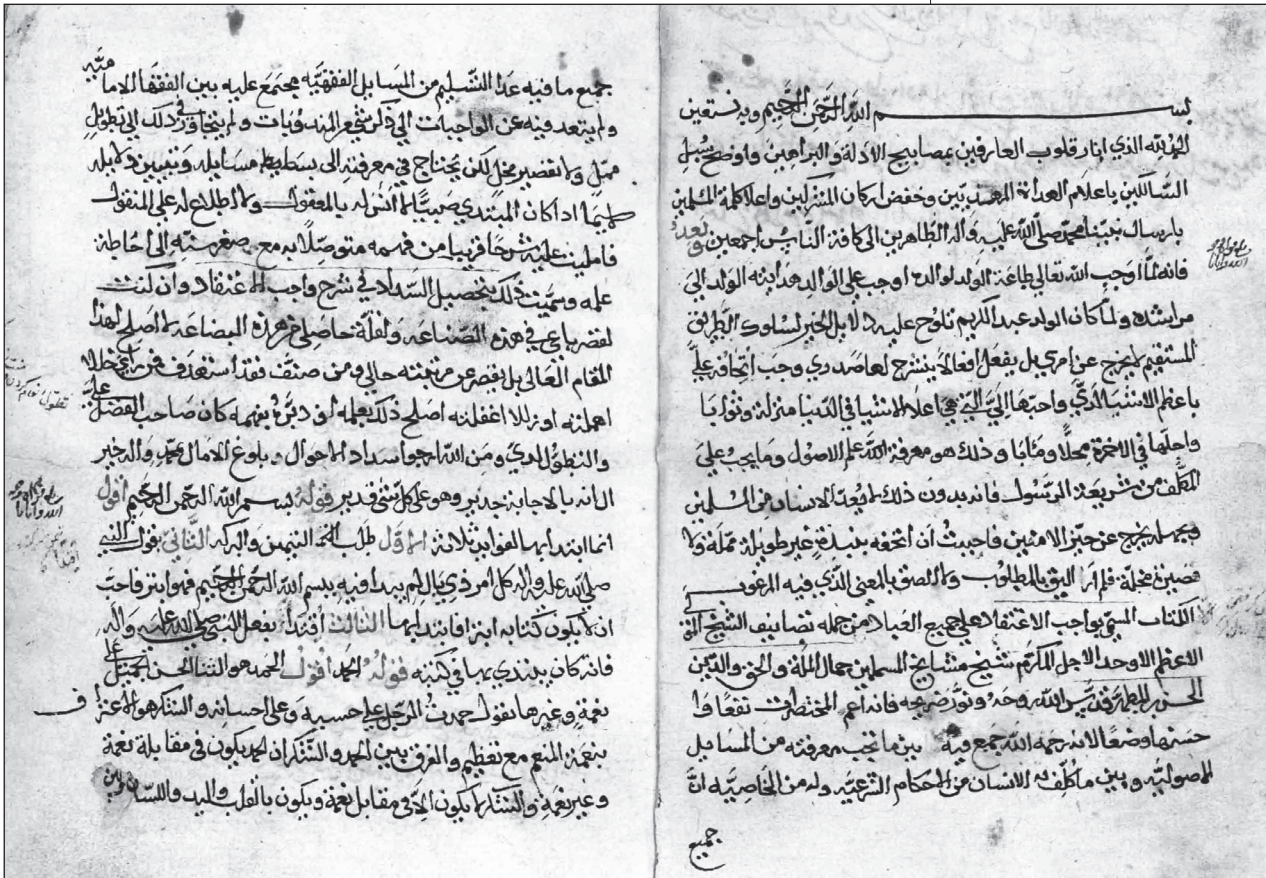 بسم الله الرحمن الرحيم وبه نستعين
الحمد لله الذي انار قلوب العارفين بمصابيح الادلة والبراهين واوضح سبل
السالكين باعلام الهداة المهديين وخفض اركان المشركين واعلا كلمة المسلمين
بارسال نبينا محمد صلى الله عليه وآله الطاهرين الى كافة الناس اجمعين وبعد
فانه لما اوجب الله تعالى طاعة الولد لوالده اوجب على الوالد هدايته الولد الى
مراشده ولما كان الولد عبد الكريم تلوح عليه دلايل الخير لسلوك الطريق
المستقيم لا يخرج عن امري بل يفعل افعالا ينشرح لها صدري وجب اتحافه علي
باعظم الاشيا لدي واحبها الي التي هي اعلا الاشيا في الدنيا منزلة وثوابا
واجلها في الاخرة محلا ومآبا وذلك هو معرفة الله علم الاصول وما يجب على
المكلف من شريعة الرسول فانه بدون ذلك لا يعد الانسان من المسلمين
وبجهله يخرج عن حيز الامنين فاحببت أن اتحفه بنبذة غير طويلة مملة ولا
قصيرة مخلة فلم ار اليق بالمطلوب ولا الصق بالمعنى الذي فيه المرغوب
الكتاب المسمى بواجب الاعتقاد على جميع العباد من جملة تصانيف الشيخ
الاعظم الاوحد الاجل المكرم شيخ مشايخ المسلمين جمال الملة والحق والدين
الحسن بن المطهر قدس الله روحه ونور ضريحه فانه اعم المختصرات نفعا وا
حسنها وضعا لانه رحمه الله جمع فيه بين ما تجب معرفته من المسايل
الاصولية وبين ما كلف به الانسان من الاحكام الشرعية وله من الخاصية ان
جميع
جميع ما فيه عدا التسليم من المسايل الفقهية مجتمع عليه بين الفقها الامامية
ولم يتعد فيه عن الواجبات الى ذكر شيء من المندوبات ولم يتجاوز في ذلك الى تطويل
ممل ولا تقصير مخل لكن يحتاج في معرفته الى بسط مسايله وتبيين دلايله
سيما اذا كان المبتدي صبيا لا انس له بالمعقول ولا اطلاع له على المنقول
فامليت عليه شرحا قريبا من فهمه متوصلا به مع صغر سنه الى احاطة
علمه وسميت ذلك بتحصيل السداد في شرح واجب الاعتقاد وان كنت
لقصر باعي في هذه الصناعة ولقلة حاصلي من هذه البضاعة لا اصلح لهذا
المقام العالي بل يقصر عن مرتبته حالي ومن صنف فقد استقذف فمن راى خللا
اهملته او زللا اغفلته اصلح ذلك بعلمه او دبره بفهمه كان صاحب الفضل علي
والتطول لدي ومن الله ارجو سداد الاحوال وبلوغ الامال بمحمد والخير
الآل انه بالاجابة جدير وهو على كل شي قدير قوله بسم الله الرحمن الرحيم اقول
انما ابتدا بها لفوايد ثلاثة الاول طلب التيمن والبركة الثاني قول النبي
صلى الله عليه وآله كل امر ذي بال لم يبدا فيه ببسم الله الرحمن الرحيم فهو ابتر فاحب
ان لا يكون كتابه ابترا فابتدا بها الثالث اقتدا بفعل النبي صلى الله عليه وآله
فانه كان يبتدي بها في كتبه قوله الحمد اقول الحمد هو الثنا الحسن الجميل على
نعمة وغيرها يقول حمدت الرجل على حسبه وعلى احسانه والشكر هو الاعتراف
بنعمة المنعم مع تعظيم والفرق بين الحمد والشكر ان الحمد يكون في مقابلة نعمة
وغير نعمة والشكر لا يكون الا في مقابل نعمة ويكون بالقلب واليد واللسان